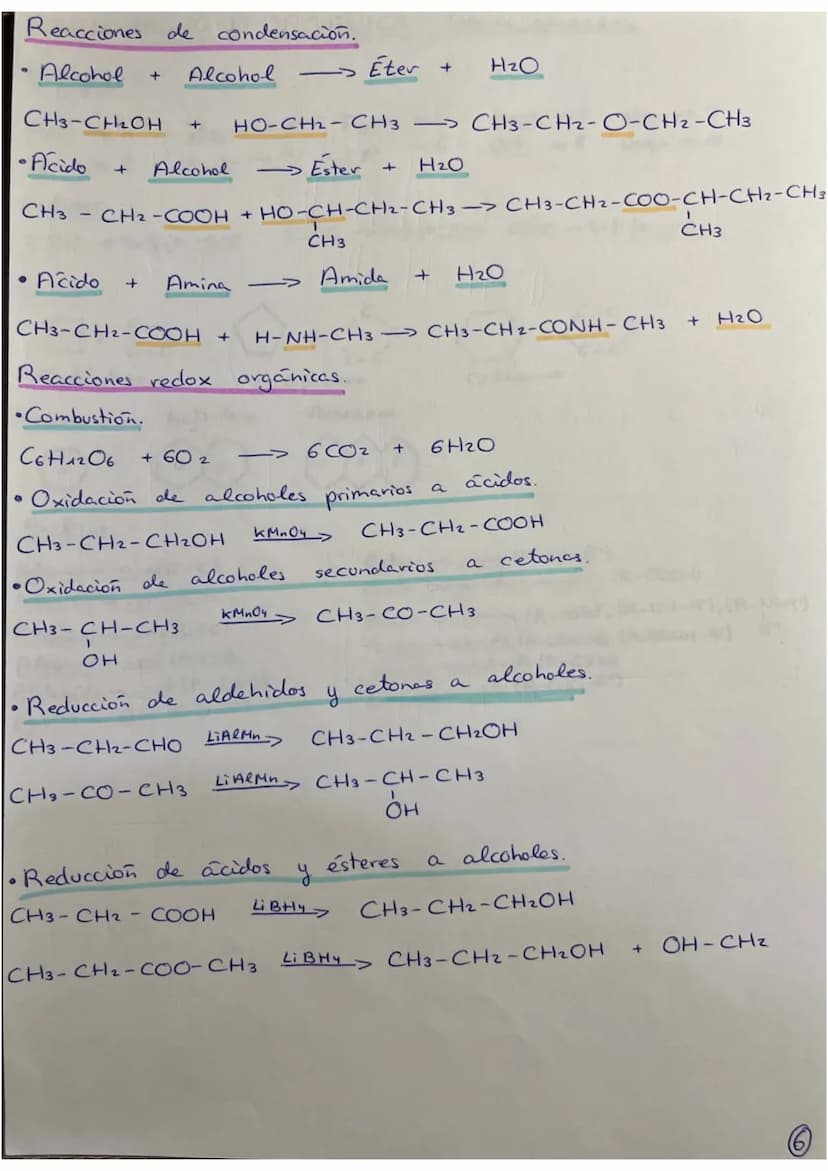 Reacciones de condensación.
· Alcohol + Alcohol → Éter + H2O
CH3-CH2OH + HO-CH2-CH3 → CH3-CH2-O-CH2-CH3
· Ácido + Alcohol → Éster + H2O
CH3-CH2-COOH + HO-CH-CH2-CH3 → CH3-CH2-COO-CH-CH2-CH3
CH3 CH3
· Ácido + Amina → Amida + H2O
CH3-CH2-COOH + H-NH-CH3 → CH3-CH2-CONH-CH3 + H2O
Reacciones redox orgánicas.
· Combustión.
C6H12O6 + 6O2 → 6CO2 + 6H2O
· Oxidación de alcoholes primarios a ácidos.
CH3-CH2-CH2OH KMnO4 → CH3-CH2-COOH
· Oxidación de alcoholes secundarios a cetonas.
CH3-CH-CH3 KMnO4 → CH3-CO-CH3
OH
· Reducción de aldehidos y cetonas a alcoholes.
CH3-CH2-CHO LiAlHn → CH3-CH2-CH2OH
CH3-CO-CH3 LiAlHn → CH3-CH-CH3
OH
· Reducción de ácidos y ésteres a alcoholes.
CH3-CH2-COOH LiBH4 → CH3-CH2-CH2OH
CH3-CH2-COO-CH3 LiBH4 → CH3-CH2-CH2OH + OH-CH2
6